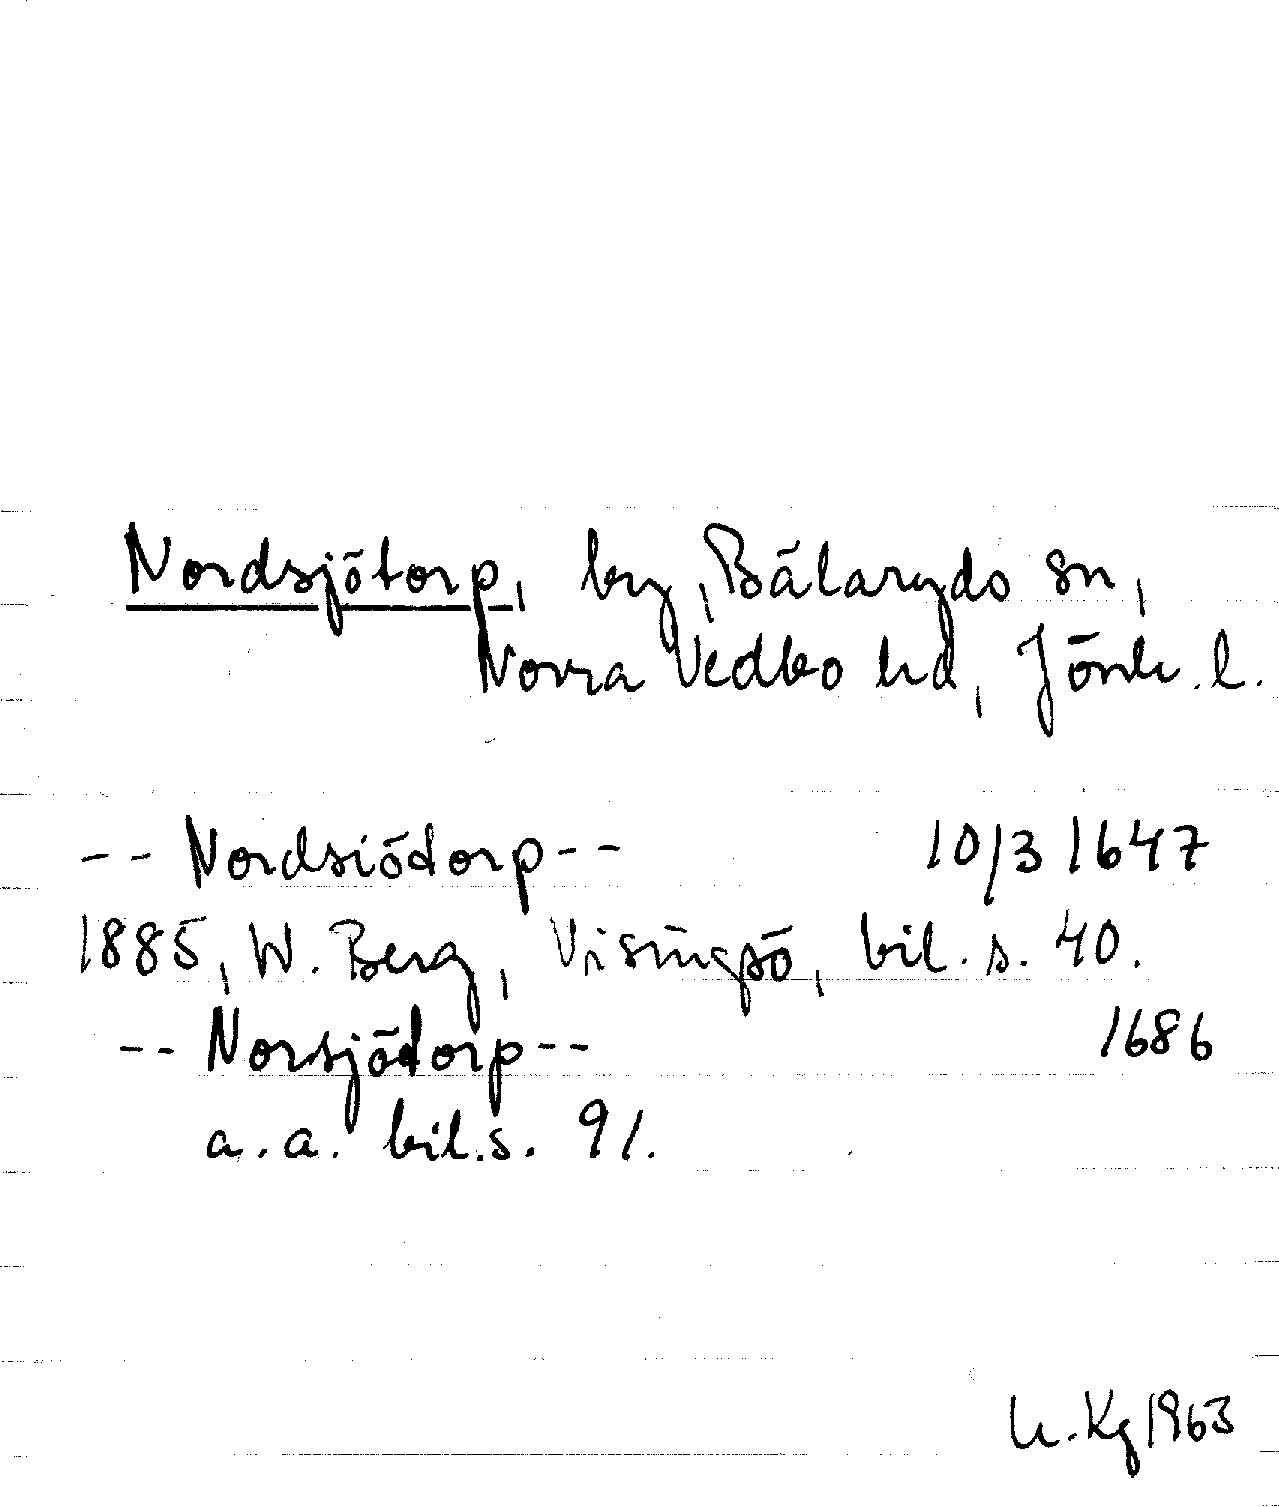 Nordsjötorp, by, Bälaryds sn,
Norra Vedbo hd, Jönk. l.
-- Nordsiödorp -- 10/3 1647
1885, W. Berg, Visingsö, bil. s. 40.
-- Norsjödorp -- 1686
a.a. bil.s. 91.
Kg 1963